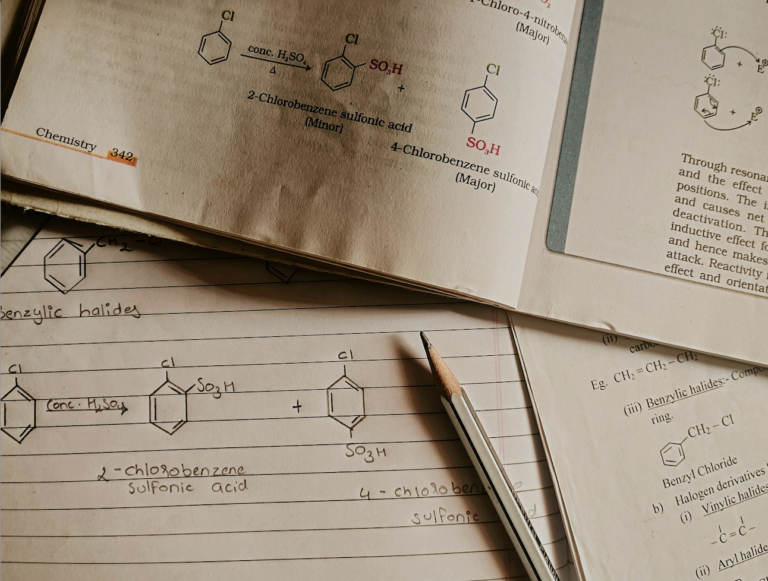 -Chloro-4-nitroben
(Major)
Cl
conc. H₂SO₄
Δ
Cl
SO₃H
+
Cl
SO₃H
2-Chlorobenzene sulfonic acid
(Minor)
4-Chlorobenzene sulfonic
(Major)
Chemistry 342
:Cl:
+ E⊕
:Cl:
+ E⊕
Through resona
and the effect
positions. The i
and causes net
deactivation. Th
inductive effect fo
and hence makes
attack. Reactivity
effect and orientat
CH₂ -
benzylic halides
Cl
Conc. H₂SO₄
Cl
SO₃H
+
Cl
SO₃H
2-chlorobenzene
sulfonic acid
4-chloroben
sulfonic
(ii)
carbo
Eg. CH₂ = CH₂ – CH₂
(iii) Benzylic halides:- Comp
ring.
CH₂ – Cl
Benzyl Chloride
b) Halogen derivatives
(i) Vinylic halides
–C = C–
(ii) Aryl halide